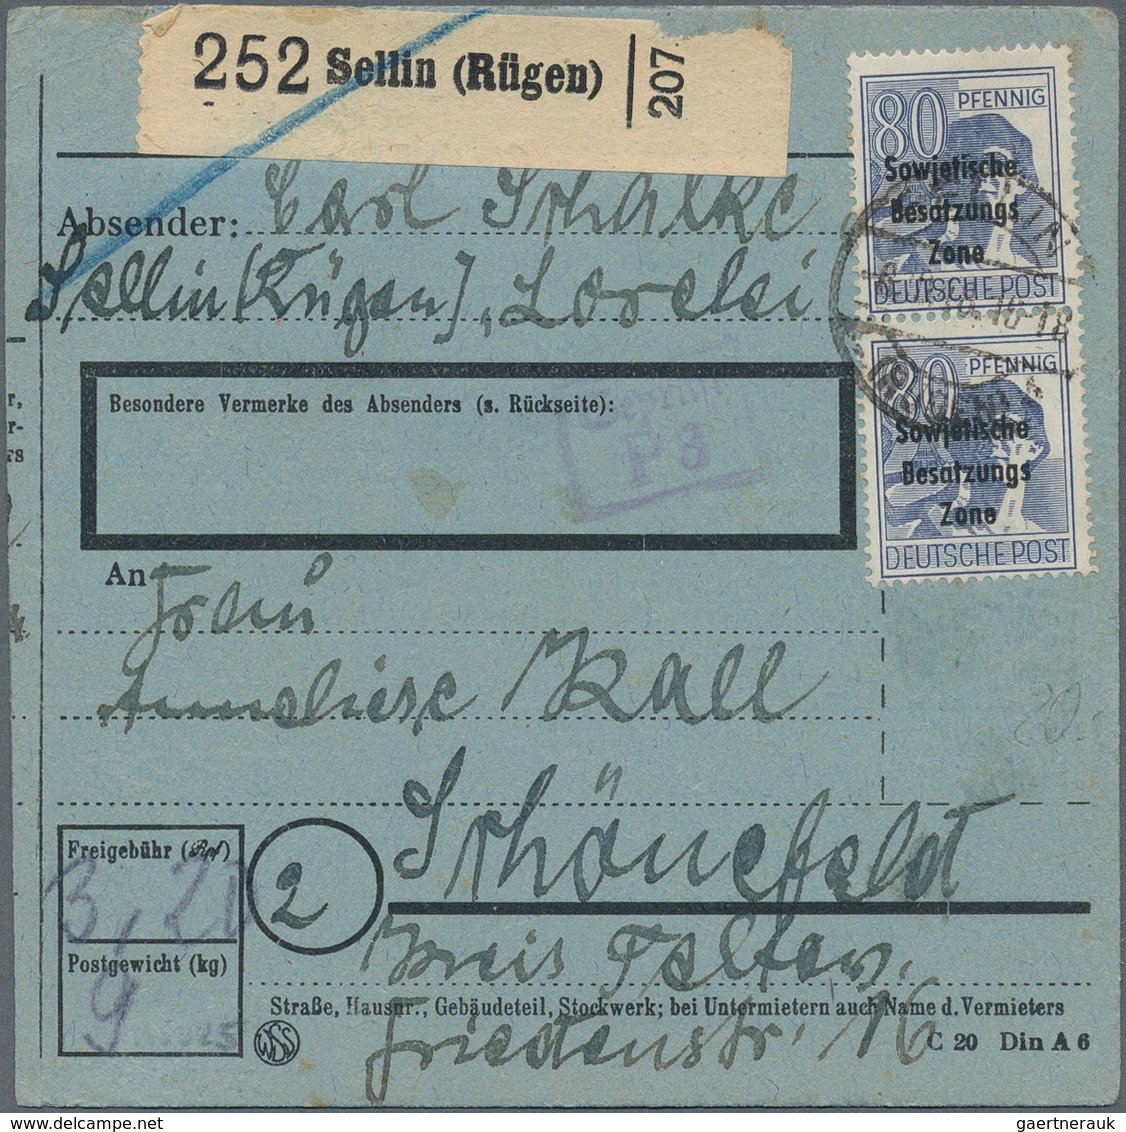 252 Sellin (Rügen) 207
80 PFENNIG
Sowjetische
Besatzungs
Zone
DEUTSCHE POST
Absender: Carl Schalke
Sellin (Rügen), Lorelei
80 PFENNIG
Sowjetische
Besatzungs
Zone
DEUTSCHE POST
Besondere Vermerke des Absenders (s. Rückseite):
P 3
An Frau
Anneliese Kall
20.
Schönefeld
Freigebühr (Rpf)
3,20
2
Kreis Teltow.
Postgewicht (kg)
9
Straße, Hausnr., Gebäudeteil, Stockwerk; bei Untermietern auch Name d. Vermieters
Friedenstr. 16
WSS
C 20 Din A 6
gaertnerauk